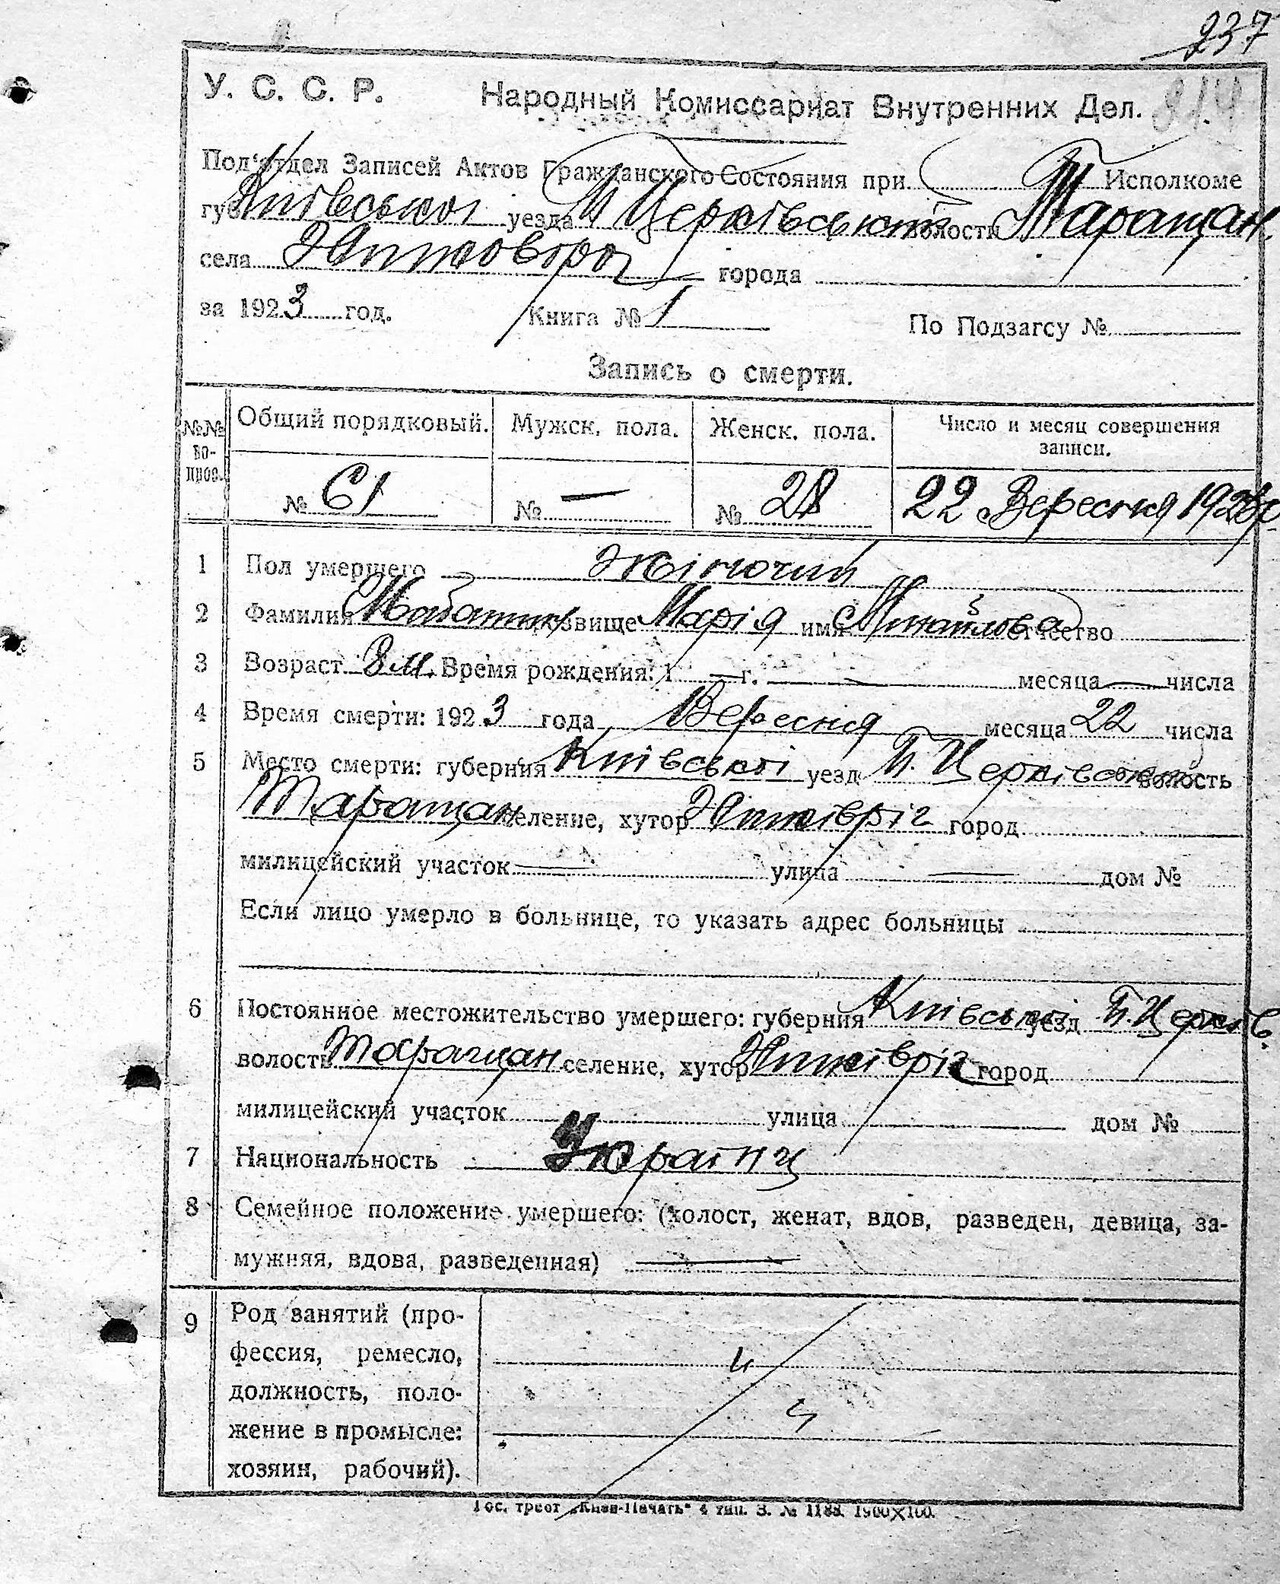 237
814
У. С. С. Р. Народный Комиссариат Внутренних Дел.
Под'отдел Записей Актов Гражданского Состояния при Исполкоме
губ Київської уезда Б Церківський волости Таращан.
села города
за 1923 год. Книга № 1 По Подзагсу №
Запись о смерти.
№№ вопрос. Общий порядковый. Мужск. пола. Женск. пола. Число и месяц совершения записи.
№ 61 № — № 28 22 Вересня 1923 р
1 Пол умершего Жіночий
2 Фамилия прозвище Марія имя Михайлова отчество
3 Возраст 8 м. Время рождения: 1 — г. — месяца — числа
4 Время смерти: 1923 года Вересня месяца 22 числа
5 Место смерти: губерния Київської уезд Б. Церківський волость
Таращан селение, хутор город
милицейский участок — улица — дом №
Если лицо умерло в больнице, то указать адрес больницы
6 Постоянное местожительство умершего: губерния Київської уезд Б. Церків.
волость Таращан селение, хутор город
милицейский участок улица дом №
7 Национальность Українц
8 Семейное положение умершего: (холост, женат, вдов, разведен, девица, за-
мужняя, вдова, разведенная) —
9 Род занятий (про-
фессия, ремесло,
должность, поло-
жение в промысле:
хозяин, рабочий).
Гос. трест „Киев-Печать" 4 тип. З. № 1188. 1900×100.